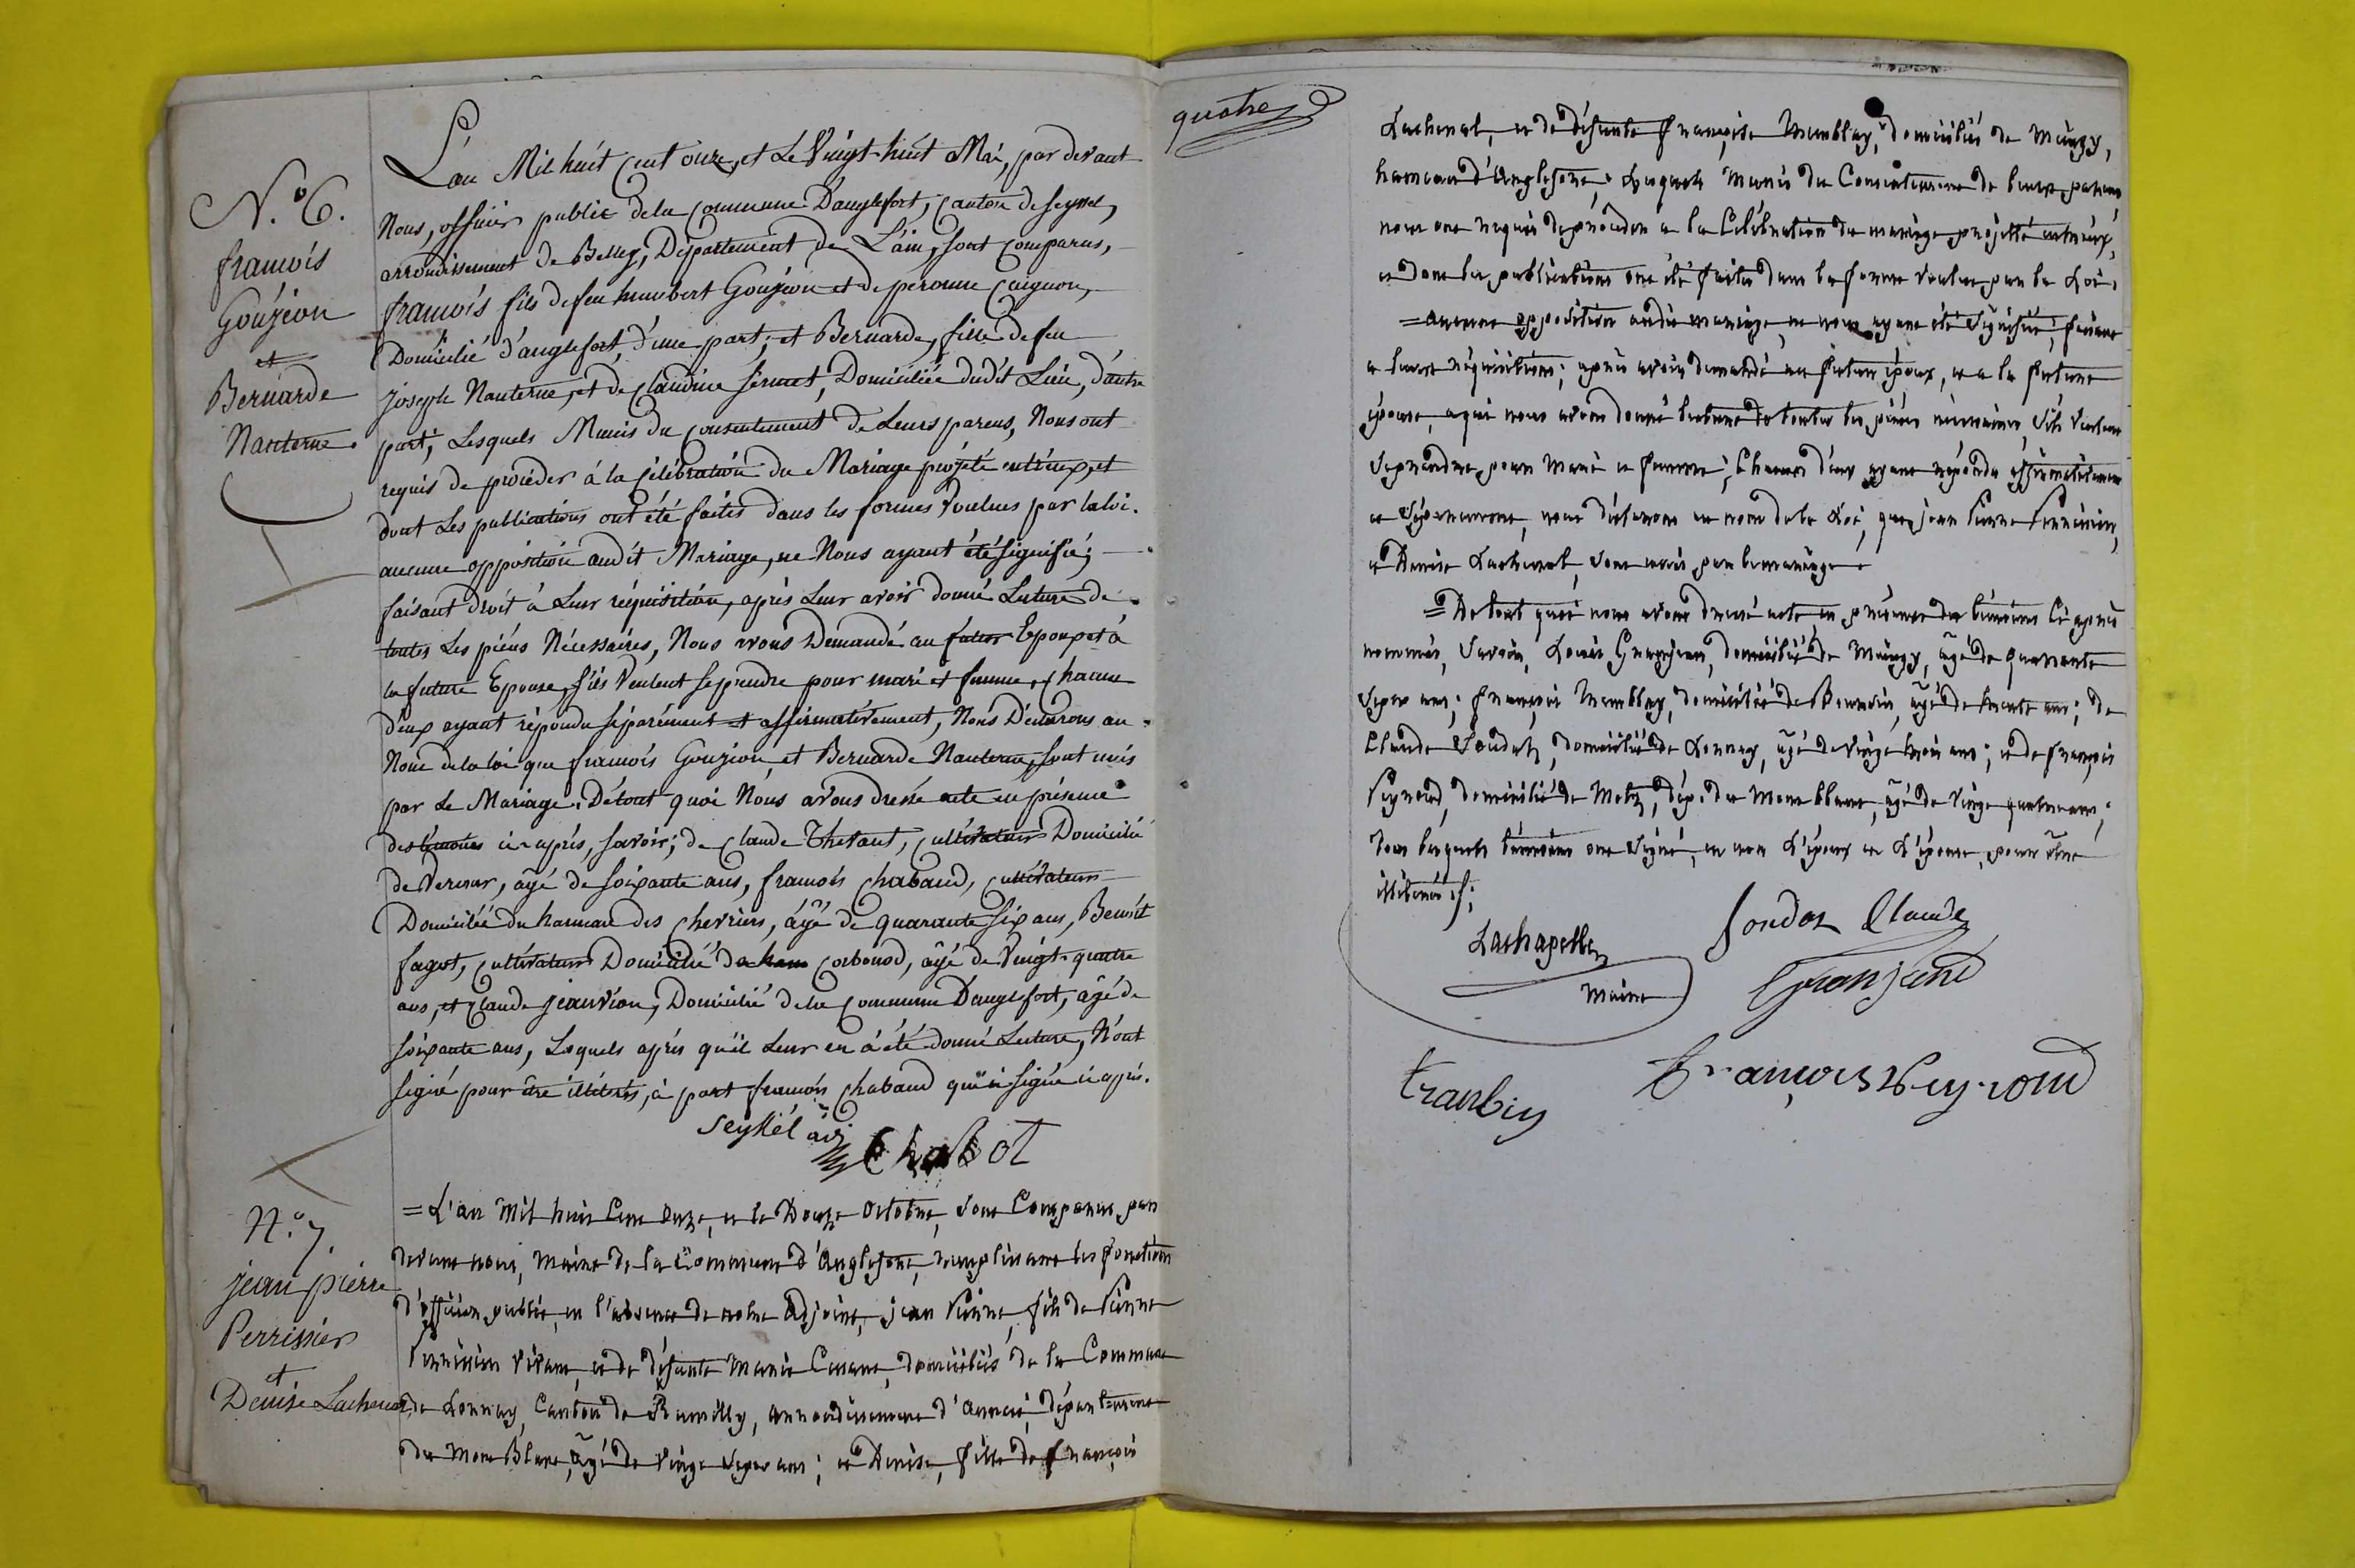 N.° 6.
francois
Goujeon
et
Bernarde
Nanterne.
L'an Mil huit Cent onze, et Le Vingt-huit Mai, par devant
Nous, officier public de la Commune D'anglefort, Canton de Seyssel,
arrondissement de Belley, Département de L'ain, sont Comparus,
francois fils de feu humbert Goujeon et de peronne Caignon,
Domicilié d'anglefort, d'une part; et Bernarde, fille de feu
joseph Nanterne, et de Claudine , Domiciliée dudit Lieu, d'autre
part; Lesquels Munis du Consentement de Leurs parens, Nous ont
requis de procéder à la Célébration du Mariage projeté entr'eux, et
dont Les publications ont été faites dans les formes Voulues par la loi.
aucune opposition audit Mariage, ne Nous ayant été signifié;
faisant droit à Leur réquisition, après Leur avoir donné Lecture de
toutes Les pièces Nécessaires, Nous avons Demandé au futur Epoux et à
la future Epouse, s'ils Veulent se prendre pour mari et femme, Chacun
d'eux ayant répondu séparément et affirmativement, Nous Déclarons au
Nom de la loi que francois Goujeon, et Bernarde Nanterne, sont unis
par Le Mariage. De tout quoi Nous avons dressé acte en présence
des témoins ci-après, savoir; de Claude Thevant, Cultivateur Domicilié
de , âgé de soixante ans, francois Chabaud, Cultivateur
Domicilié du hameau des Chevriers, âgé de quarante six ans, Benoit
fagot, Cultivateur Domicilié de Corbonod, âgé de Vingt-quatre
ans, et Claude jeanvion, Domicilié de la Commune D'anglefort, âgé de
soixante ans, Lesquels après qu'il Leur en à été donné Lecture, N'ont
signé pour être illitérés, à part francois Chabaud qui à signé ci après.
Seyssel adj
Chabot
N.° 7.
jean pierre
Perrissier
et
Denise Lachenal
= L'an Mil huit Cent Onze, et le Douze Octobre, sont Comparus, par
devant nous, Maire de la Commune d'Anglefort, remplissant les fonctions
d'officier public, en l'absence de notre Adjoint, jean Pierre, fils de Pierre
Perrissier vivant, et de défunte Marie , domiciliés de la Commune
de Lornay, Canton de Rumilly, arrondissement d'Anneci, département
du Mont Blanc, âgé de vingt Sept ans; et Denise, fille de François
quatre
Lachenal, et de défunte Françoise Mumblay, domiciliés de ,
hameau d'Anglefort. Lesquels Munis du Consentement de leurs parens,
nous ont requis de procéder à la Célébration du mariage projetté entr'eux,
et dont les publications ont été faites dans la forme Voulue par la Loi.
= Aucune opposition audit mariage, ne nous ayant été Signifiée; faisant
a leurs réquisitions; après avoir demandé au futur époux, et a la future
épouse, a qui nous avons donné lecture de toutes les pièces nécessaires, S'ils Veulent
se prendre pour Mari et femme; Chacun d'eux ayant répondu affirmativement
et Séparément, nous déclarons au nom de la Loi, que jean Pierre Perrissier,
et Denise Lachenal, Sont unis par le mariage.
= De tout quoi nous avons dressé acte, en présence des témoins Ci après
nommés, Savoir, Louis , domicilié de , âgé de quarante
Sept ans; François Mumblay, domicilié de , âgé de trente ans; de
Claude Soudat, domicilié de Lornay, âgé de vingt trois ans; et de François
Peyroud, domicilié de Motz, dép. du Mont blanc, âgé de Vingt quatre ans;
Tous lesquels témoins ont Signé, et non L'époux et L'épouse, pour être
illiterés;
Lachapelle
Maire
Soudat Claude
Granjand
François Peyroud